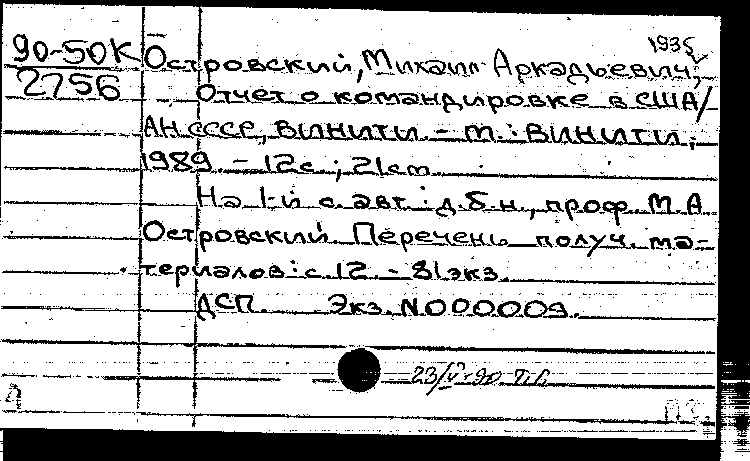 1935
90-50К Островский, Михаил Аркадьевич,
2756 Отчет о командировке в США/
АН СССР, ВИНИТИ. - М.: ВИНИТИ,
1989. - 12с.; 21см.
На 1-й с. авт.: д.б.н., проф. М.А
Островский. Перечень получ. ма-
териалов: с. 12. - 81экз.
ДСП. Экз. N000009.
23/V-90